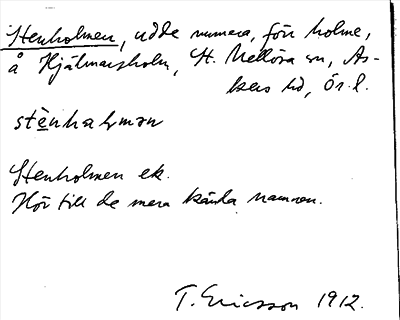 Stenholmen, udde numera, förr holme,
å Hjälmarsholm, St. Mellösa sn, As-
kers hd, Ör. l.
stènhaḷmən
Stenholmen ek.
Hör till de mera kända namnen.
T. Ericsson 1912.